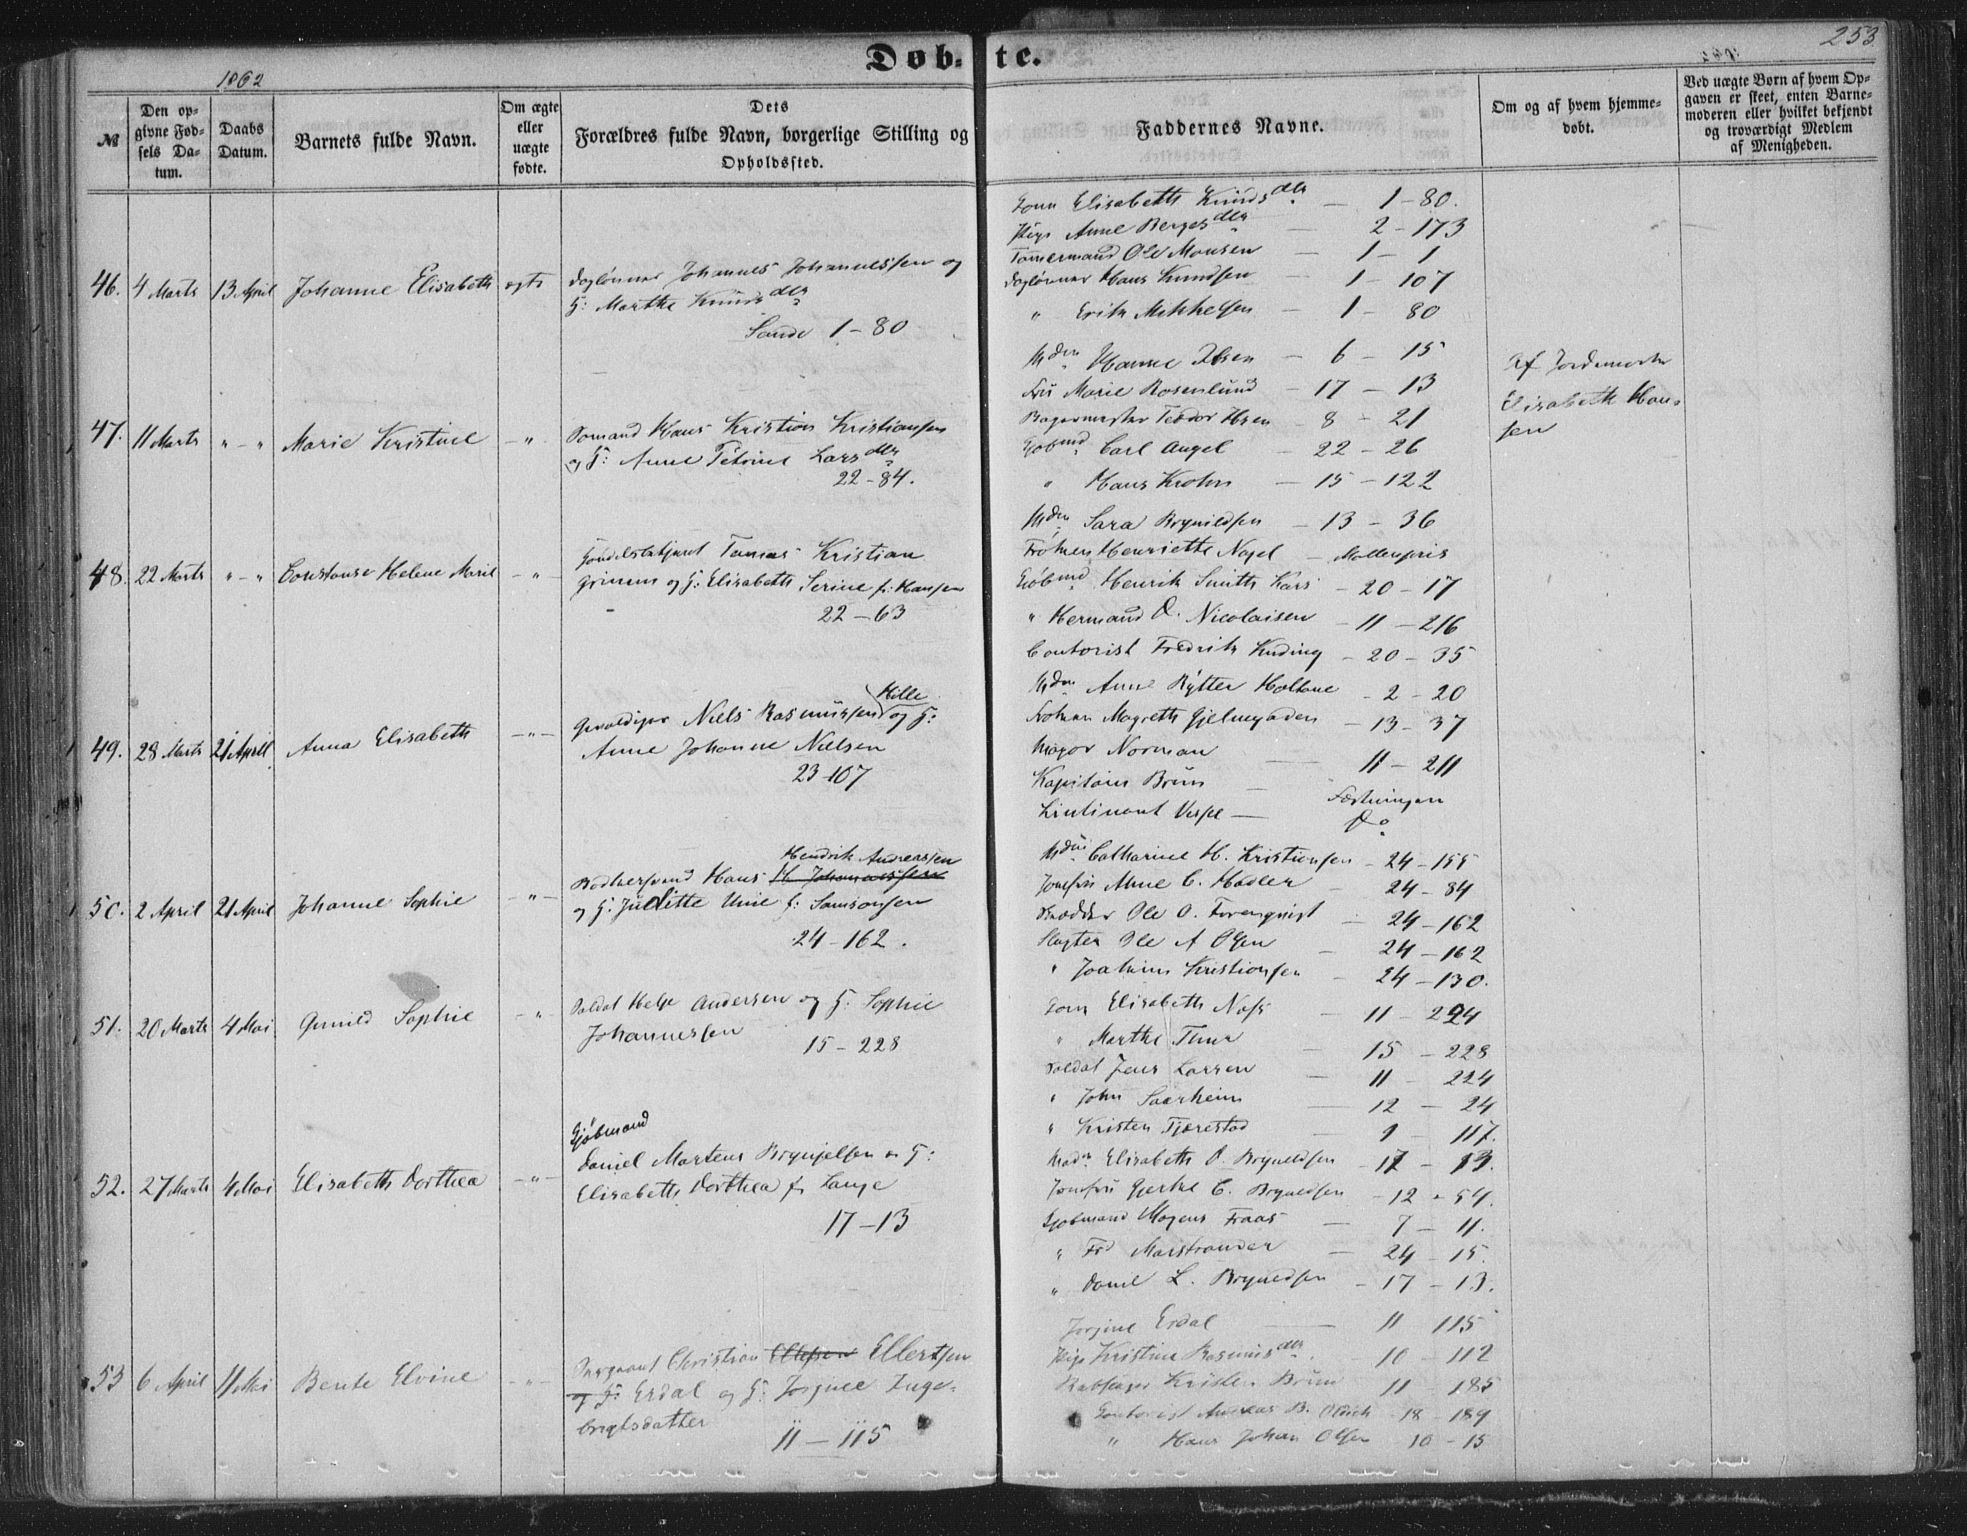 253
1862
Døb-te.
№
Den op-
givne Fød-
sels Da-
tum.
Daabs
Datum.
Barnets fulde Navn.
Om ægte
eller
uægte
fødte.
Dets
Forældres fulde Navn, borgerlige Stilling og
Opholdssted.
Faddernes Navne.
Om og af hvem hjemme-
døbt.
Ved uægte Børn af hvem Op-
gaven er skeet, enten Barne-
moderen eller hvilket bekjendt
og troværdigt Medlem
af Menigheden.
46. 4 Marts 13 April Johanne Elisabeth ægte
Dagleiner Johannes Johannessen og
H: Marthe Knudsdtr
Sande 1-80
Elisabeth Knudsdtr — 1-80.
Pige Anne Bergesdtr — 2-173
Tømermand Ole Monsen — 1-1
Dagleiner Hans Knudsen — 1-107
" Erik Mikkelsen — 1-80
47. 11 Marts "-" Marie Kristine -"-
Sømand Hans Kristian Kristiansen
og H: Anne Petrine Larsdtr
22-84.
Mdm Hanne Ibsen — 6-15
Frk Marie Rosenlund — 17-13
Bagermester Teodor Ibsen — 8-21
Kjøbmd Carl Angel — 22-26
" Hans Krohn — 15-122
Af Jordemoder
Elisabeth Han-
sen
48. 22 Marts "-" Constanse Helene Marie -"-
Tomas Kristian
Grimm og H: Elisabeth Serine f: Hansen
22-63
Mdm Sara Brynildsen — 13-36
Frøken Henriette Nagel — Møllenpris
Kjøbmd Henrik Smith Kars — 20-17
" Hermand D. Nicolaisen — 11-216
Contorist Fredrik Kuding — 20-35
49. 28 Marts 21 April Anna Elisabeth -"-
Gevaldiger Niels Rasmussen Hille og H:
Anne Johanne Nielsen
23-107
Mdm Anne Rÿtter Holtane — 2-20
Frøken Magreth Gjelmeyden — 13-37
Major Norman — 11-211
Kapitain Brun — Fæstningen
Lieutinant — Do
50. 2 April 21 April Johanne Sophie -"-
Bødkersvend Hans H Johannessen Hendrik Andreassen
og H: Juditte Unie f: Samsonsen
24-162.
Mdm Catharine H. Kristiansen — 24-155
Jomfru Anne C. Hadler — 24-84
Ole O. Forenqvist — 24-162
Slagter Ole A Olsen — 24-162
" Joakim Kristiansen — 24-130.
51. 20 Marts 4 Mai Gunild Sophie -"-
Soldat Helje Andersen og H. Sophie
Johannessen 15-228
Elisabeth Næss — 11-224
" Marthe — 15-228
Soldat Jens Larsen — 11-224
" John Saarheim — 12-24
" Kristen Tjærestad — 9-117.
52. 27 Marts 4 Mai Elisabeth Dorthea -"-
Kjøbmand
Daniel Martens Brynjelsen og H:
Elisabeth Dorthea f. Lange
17-13
Madm Elisabeth D. Bryneldsen — 17-13.
Jomfru Gjertke C. Bryneldsen — 12-54.
Kjøbmand Mogens Faas — 7-11.
" Fr Marstrander — 24-15
" Daniel L. Bryneldsen — 17-13.
53 6 April 11 Mai Bente Elvine -"-
Sergeant Christian Ellefsen Ellertsen
og H: Erdal og H: Jorgine Inge-
brigtsdatter
11-115
Jorgine Erdal — 11-115
Pige Kristine Rasmusdtr. — 10-112
Kristen Brun 11-185
Contorist Andreas B. — 18-189
" Hans Johan Olsen 10-15